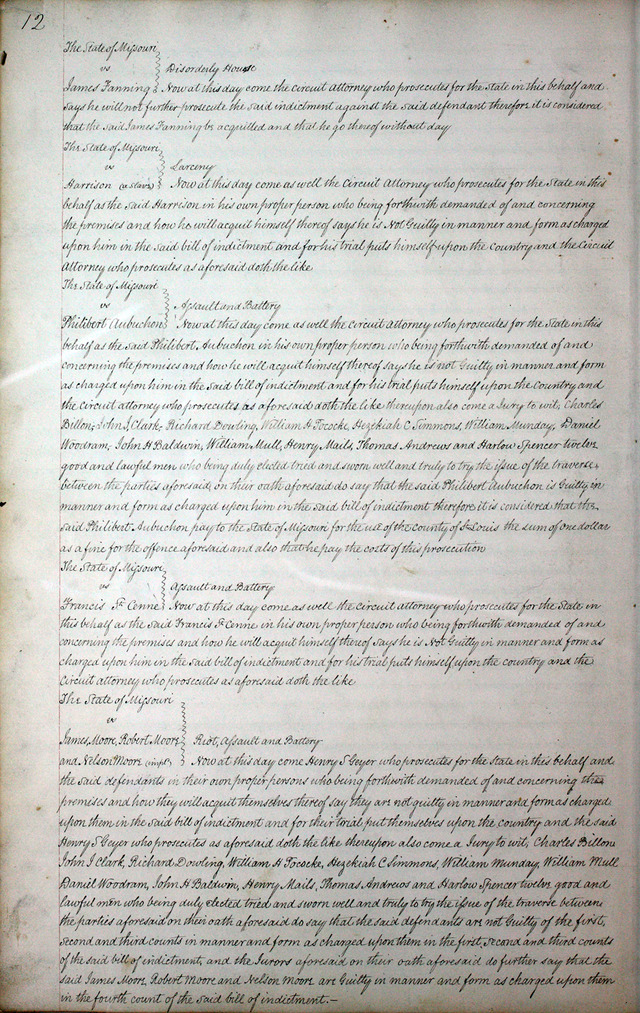 12
The State of Missouri
vs
Disorderly House
James Fanning Now at this day come the circuit Attorney who prosecutes for the State in this behalf and
says he will not further prosecute the said indictment against the said defendant therefore it is considered
that the said James Fanning be acquitted and that he go thereof without day
The State of Missouri
vs
Larceny
Harrison (a slave) Now at this day come as well the Circuit Attorney who prosecutes for the State in this
behalf as the said Harrison in his own proper person who being forthwith demanded of and concerning
the premises and how he will acquit himself thereof says he is Not Guilty in manner and form as charged
upon him in the said bill of indictment and for his trial puts himself upon the Country and the Circuit
Attorney who prosecutes as aforesaid doth the like
The State of Missouri
vs
Assault and Battery
Philibert Aubuchon Now at this day come as well the circuit Attorney who prosecutes for the State in this
behalf as the said Philibert Aubuchon in his own proper person who being forthwith demanded of and
concerning the premises and how he will acquit himself thereof says he is not Guilty in manner and form
as charged upon him in the said bill of indictment and for his trial puts himself upon the Country and
the circuit attorney who prosecutes as aforesaid doth the like thereupon also come a Jury to wit, Charles
Billon, John J Clark, Richard Dowling, William H Pococke, Hezekiah C Simmons, William Munday, Daniel
Woodram, John H Baldwin, William Mull, Henry Mails, Thomas Andrews and Harlow Spencer twelve
good and lawful men who being duly elected tried and sworn well and truly to try the issue of the traverse
between the parties aforesaid, on their oath aforesaid do say that the said Philibert Aubuchon is Guilty in
manner and form as charged upon him in the said bill of indictment therefore it is considered that the
said Philibert Aubuchon pay to the State of Missouri for the use of the County of St Louis the sum of one dollar
as a fine for the offence aforesaid and also that he pay the costs of this prosecution
The State of Missouri
vs
Assault and Battery
Francis St Cenne Now at this day come as well the circuit attorney who prosecutes for the State in
this behalf as the said Francis St Cenne in his own proper person who being forthwith demanded of and
concerning the premises and how he will acquit himself thereof says he is Not Guilty in manner and form as
charged upon him in the said bill of indictment and for his trial puts himself upon the country and the
Circuit attorney who prosecutes as aforesaid doth the like
The State of Missouri
vs
James Moore, Robert Moore Riot, Assault and Battery
and Nelson Moore Now at this day come Henry S Geyer who prosecutes for the state in this behalf and
the said defendants in their own proper persons who being forthwith demanded of and concerning the
premises and how they will acquit themselves thereof say they are not guilty in manner and form as charged
upon them in the said bill of indictment and for their trial put themselves upon the country and the said
Henry S Geyer who prosecutes as aforesaid doth the like thereupon also come a Jury to wit, Charles Billon
John J Clark, Richard Dowling, William H Pococke, Hezekiah C Simmons, William Munday, William Mull
Daniel Woodram, John H Baldwin, Henry Mails, Thomas Andrews and Harlow Spencer twelve good and
lawful men who being duly elected tried and sworn well and truly to try the issue of the traverse between
the parties aforesaid on their oath aforesaid do say that the said defendants are not Guilty of the first,
second and third counts in manner and form as charged upon them in the first, second and third counts
of the said bill of indictment, and the Jurors aforesaid on their oath aforesaid do further say that the
said James Moore, Robert Moore and Nelson Moore are Guilty in manner and form as charged upon them
in the fourth count of the said bill of indictment.—